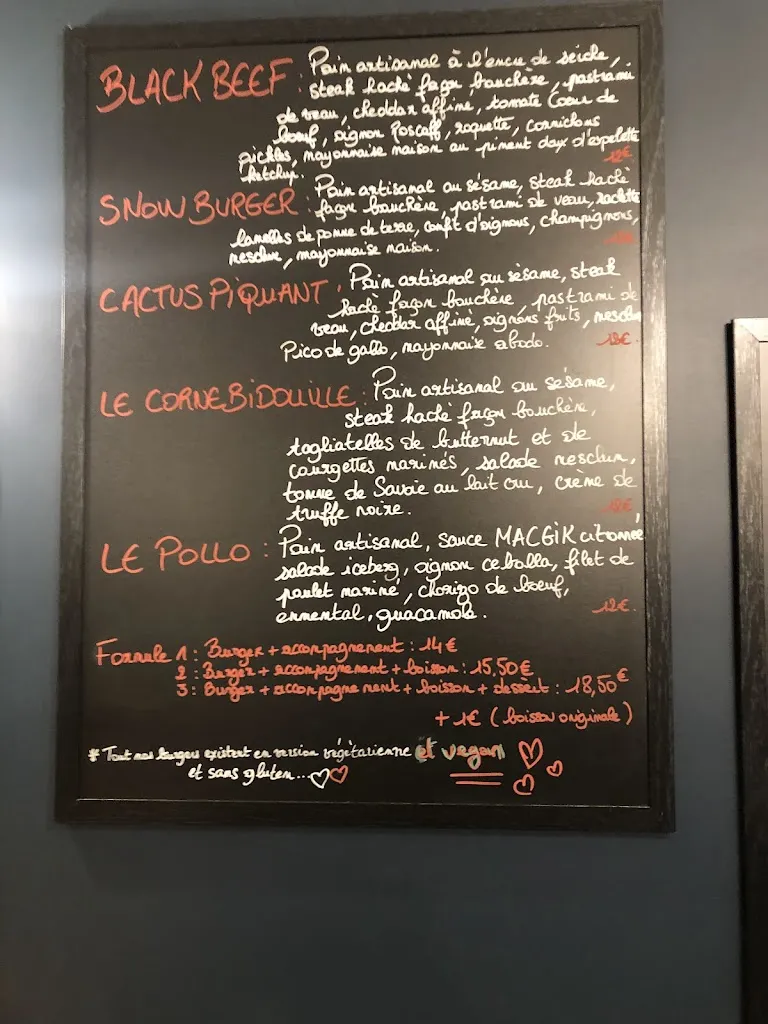 BLACK BEEF : Pain artisanal à l'encre de seiche,
steak haché façon bouchère, pastrami
de veau, cheddar affiné, tomate Coeur de
boeuf, oignon Roscoff, roquette, cornichons
pickles, mayonnaise maison au piment doux d'espelette
ketchup. 12€
SNOW BURGER : Pain artisanal au sésame, steak haché
façon bouchère, pastrami de veau, raclette
lamelles de pomme de terre, confit d'oignons, champignons,
mesclun, mayonnaise maison.
CACTUS PIQUANT : Pain artisanal au sésame, steak
haché façon bouchère, pastrami de
veau, cheddar affiné, oignons frits, mesclun
Pico de gallo, mayonnaise abodo. 12€.
LE CORNEBIDOUILLE : Pain artisanal au sésame,
steak haché façon bouchère,
tagliatelles de butternut et de
courgettes marinés, salade mesclun,
tomme de Savoie au lait cru, crème de
truffe noire. 12€
LE POLLO : Pain artisanal, sauce MACGIK citonnée,
salade iceberg, oignon cebolla, filet de
poulet mariné, chorizo de boeuf,
emmental, guacamole. 12€.
Formule 1 : Burger + accompagnement : 14€
2 : Burger + accompagnement + boisson : 15,50€
3 : Burger + accompagnement + boisson + dessert : 18,50€
+ 1€ ( boisson originale )
* Tout nos burgers existent en version végétarienne et vegan
et sans gluten...